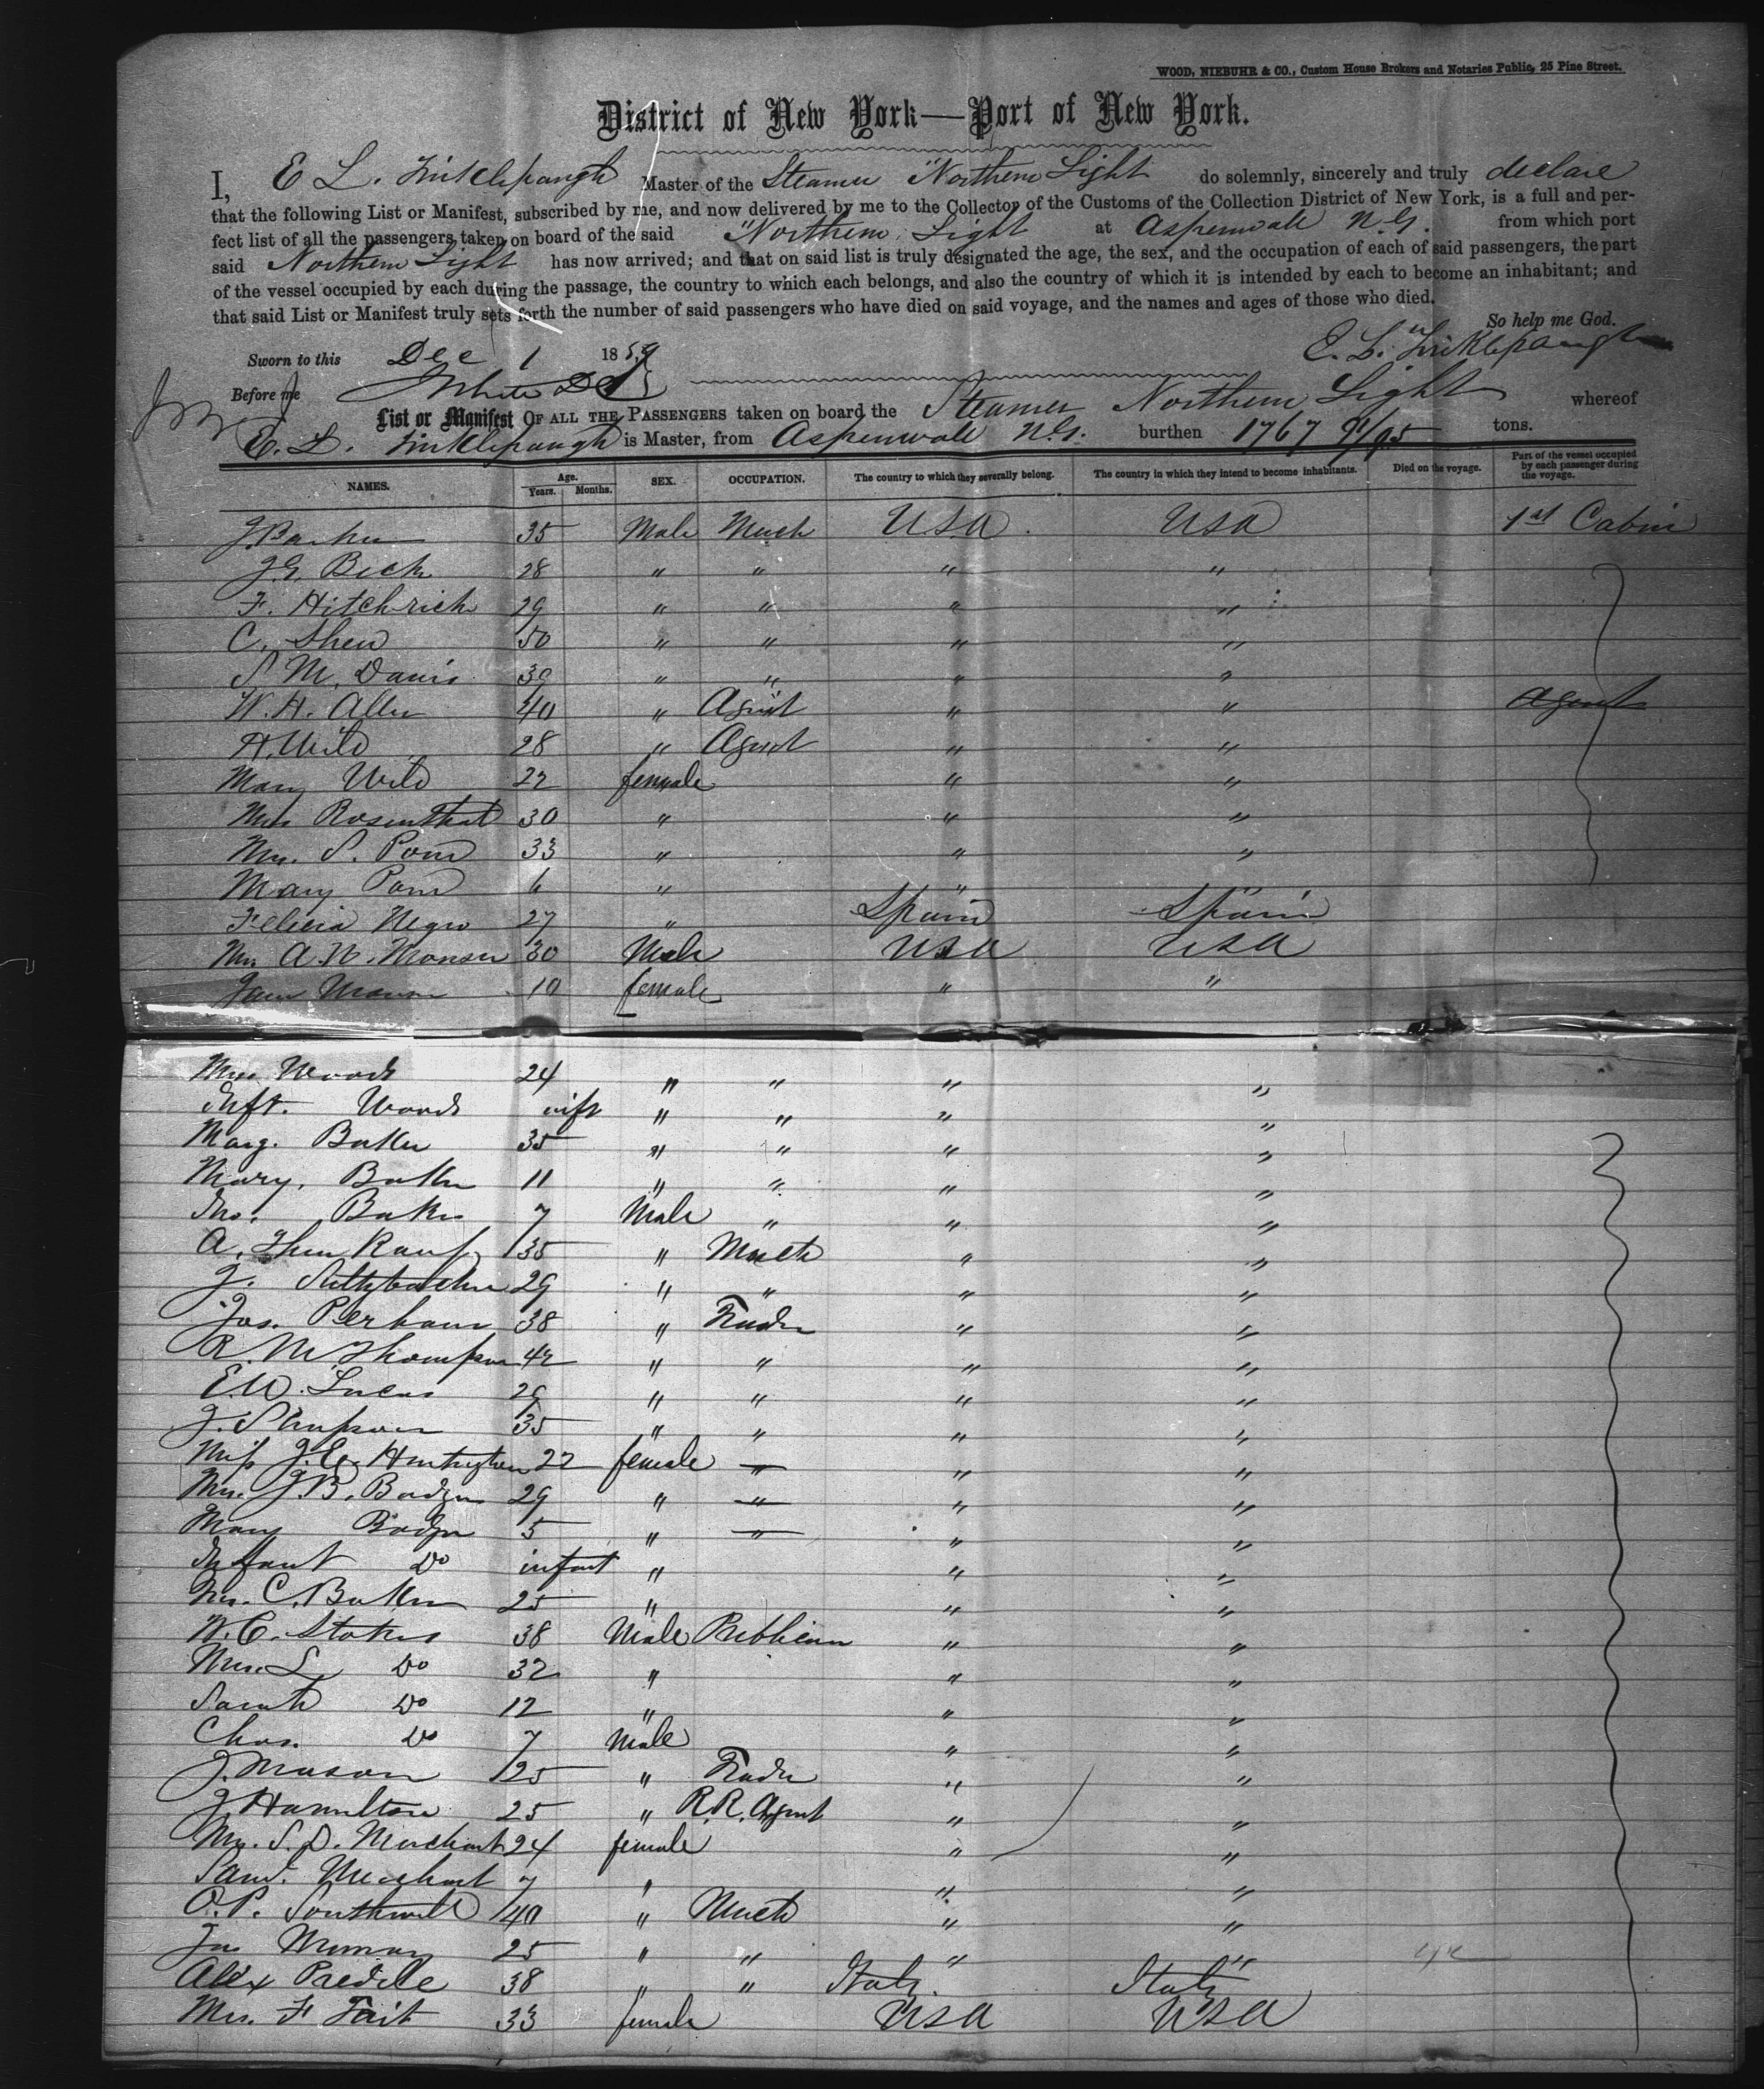 WOOD, NIEBUHR & CO., Custom House Brokers and Notaries Public, 25 Pine Street.
District of New York—Port of New York.
I, E L. Tinklepaugh Master of the Steamer "Northern Light do solemnly, sincerely and truly declare
that the following List or Manifest, subscribed by me, and now delivered by me to the Collector of the Customs of the Collection District of New York, is a full and per-
fect list of all the passengers taken on board of the said "Northern Light at Aspenwall N.G. from which port
said Northern Light has now arrived; and that on said list is truly designated the age, the sex, and the occupation of each of said passengers, the part
of the vessel occupied by each during the passage, the country to which each belongs, and also the country of which it is intended by each to become an inhabitant; and
that said List or Manifest truly sets forth the number of said passengers who have died on said voyage, and the names and ages of those who died.
So help me God.
Sworn to this Dec 1 1859 E. L. Tinklepaugh
Before me
List or Manifest OF ALL THE PASSENGERS taken on board the Steamer Northern Light whereof
E. L. Tinklepaugh is Master, from Aspenwall N.G. burthen 1767 91/95 tons.
NAMES. Age. Years. Months. SEX. OCCUPATION. The country to which they severally belong. The country in which they intend to become inhabitants. Died on the voyage. Part of the vessel occupied by each passenger during the voyage.
J. Barker 35 Male Merch USA USA 1st Cabin
J.G. Beck 28 " " " "
F. Hitchrich 29 " " " "
C. Shew 50 " " " "
S M. Davis 39 " " " "
W. H. Allen 40 " Agent " " Agent
H. Wild 28 " Agent " "
Mary Wild 22 female " "
Mrs Rosenthal 30 " " "
Mrs. S. Pond 33 " " "
Mary Pond 6 " " "
Felicia Negro 27 " Spain Spain
A. W. Monson 30 Male USA USA
10 female " "
Mrs Woods 24 " " " "
Inft. Woods inft " " " "
Marg. Baker 35 " " " "
Mary. Baker 11 " " " "
Jno. Baker 7 Male " " "
A. 35 " Merch " "
J. 29 " " " "
Jos. Perham 38 " Trader " "
R. M Thompson 42 " " " "
E.W. Lucas 29 " " " "
J. Simpson 35 " " " "
Miss J. E. Huntington 22 female " " "
Mrs. J. B. Badger 29 " " " "
Mary Badger 5 " " " "
Infant Do infant " " "
Mrs. C. Baker 25 " " "
W. C. Stokes 38 Male Publican " "
Mrs. S. Do 32 " " "
Sarah Do 12 " " "
Chas. Do 7 Male " "
J. Mason 25 " Trader " "
J Hamilton 25 " R.R. Agent " "
Mrs. S. D. Merchant 24 female " "
Saml. Merchant 7 " " "
O. P. Southwell 40 " Merch " "
Jas Murray 25 " " " "
Alex Predile 38 " " Italy Italy
Mrs. F Tait 33 female USA USA